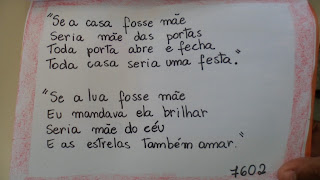 "Se a casa fosse mãe
Seria mãe das portas
Toda porta abre e fecha
Toda casa seria uma festa."
"Se a lua fosse mãe
Eu mandava ela brilhar
Seria mãe do céu
E as estrelas também amar."
7602